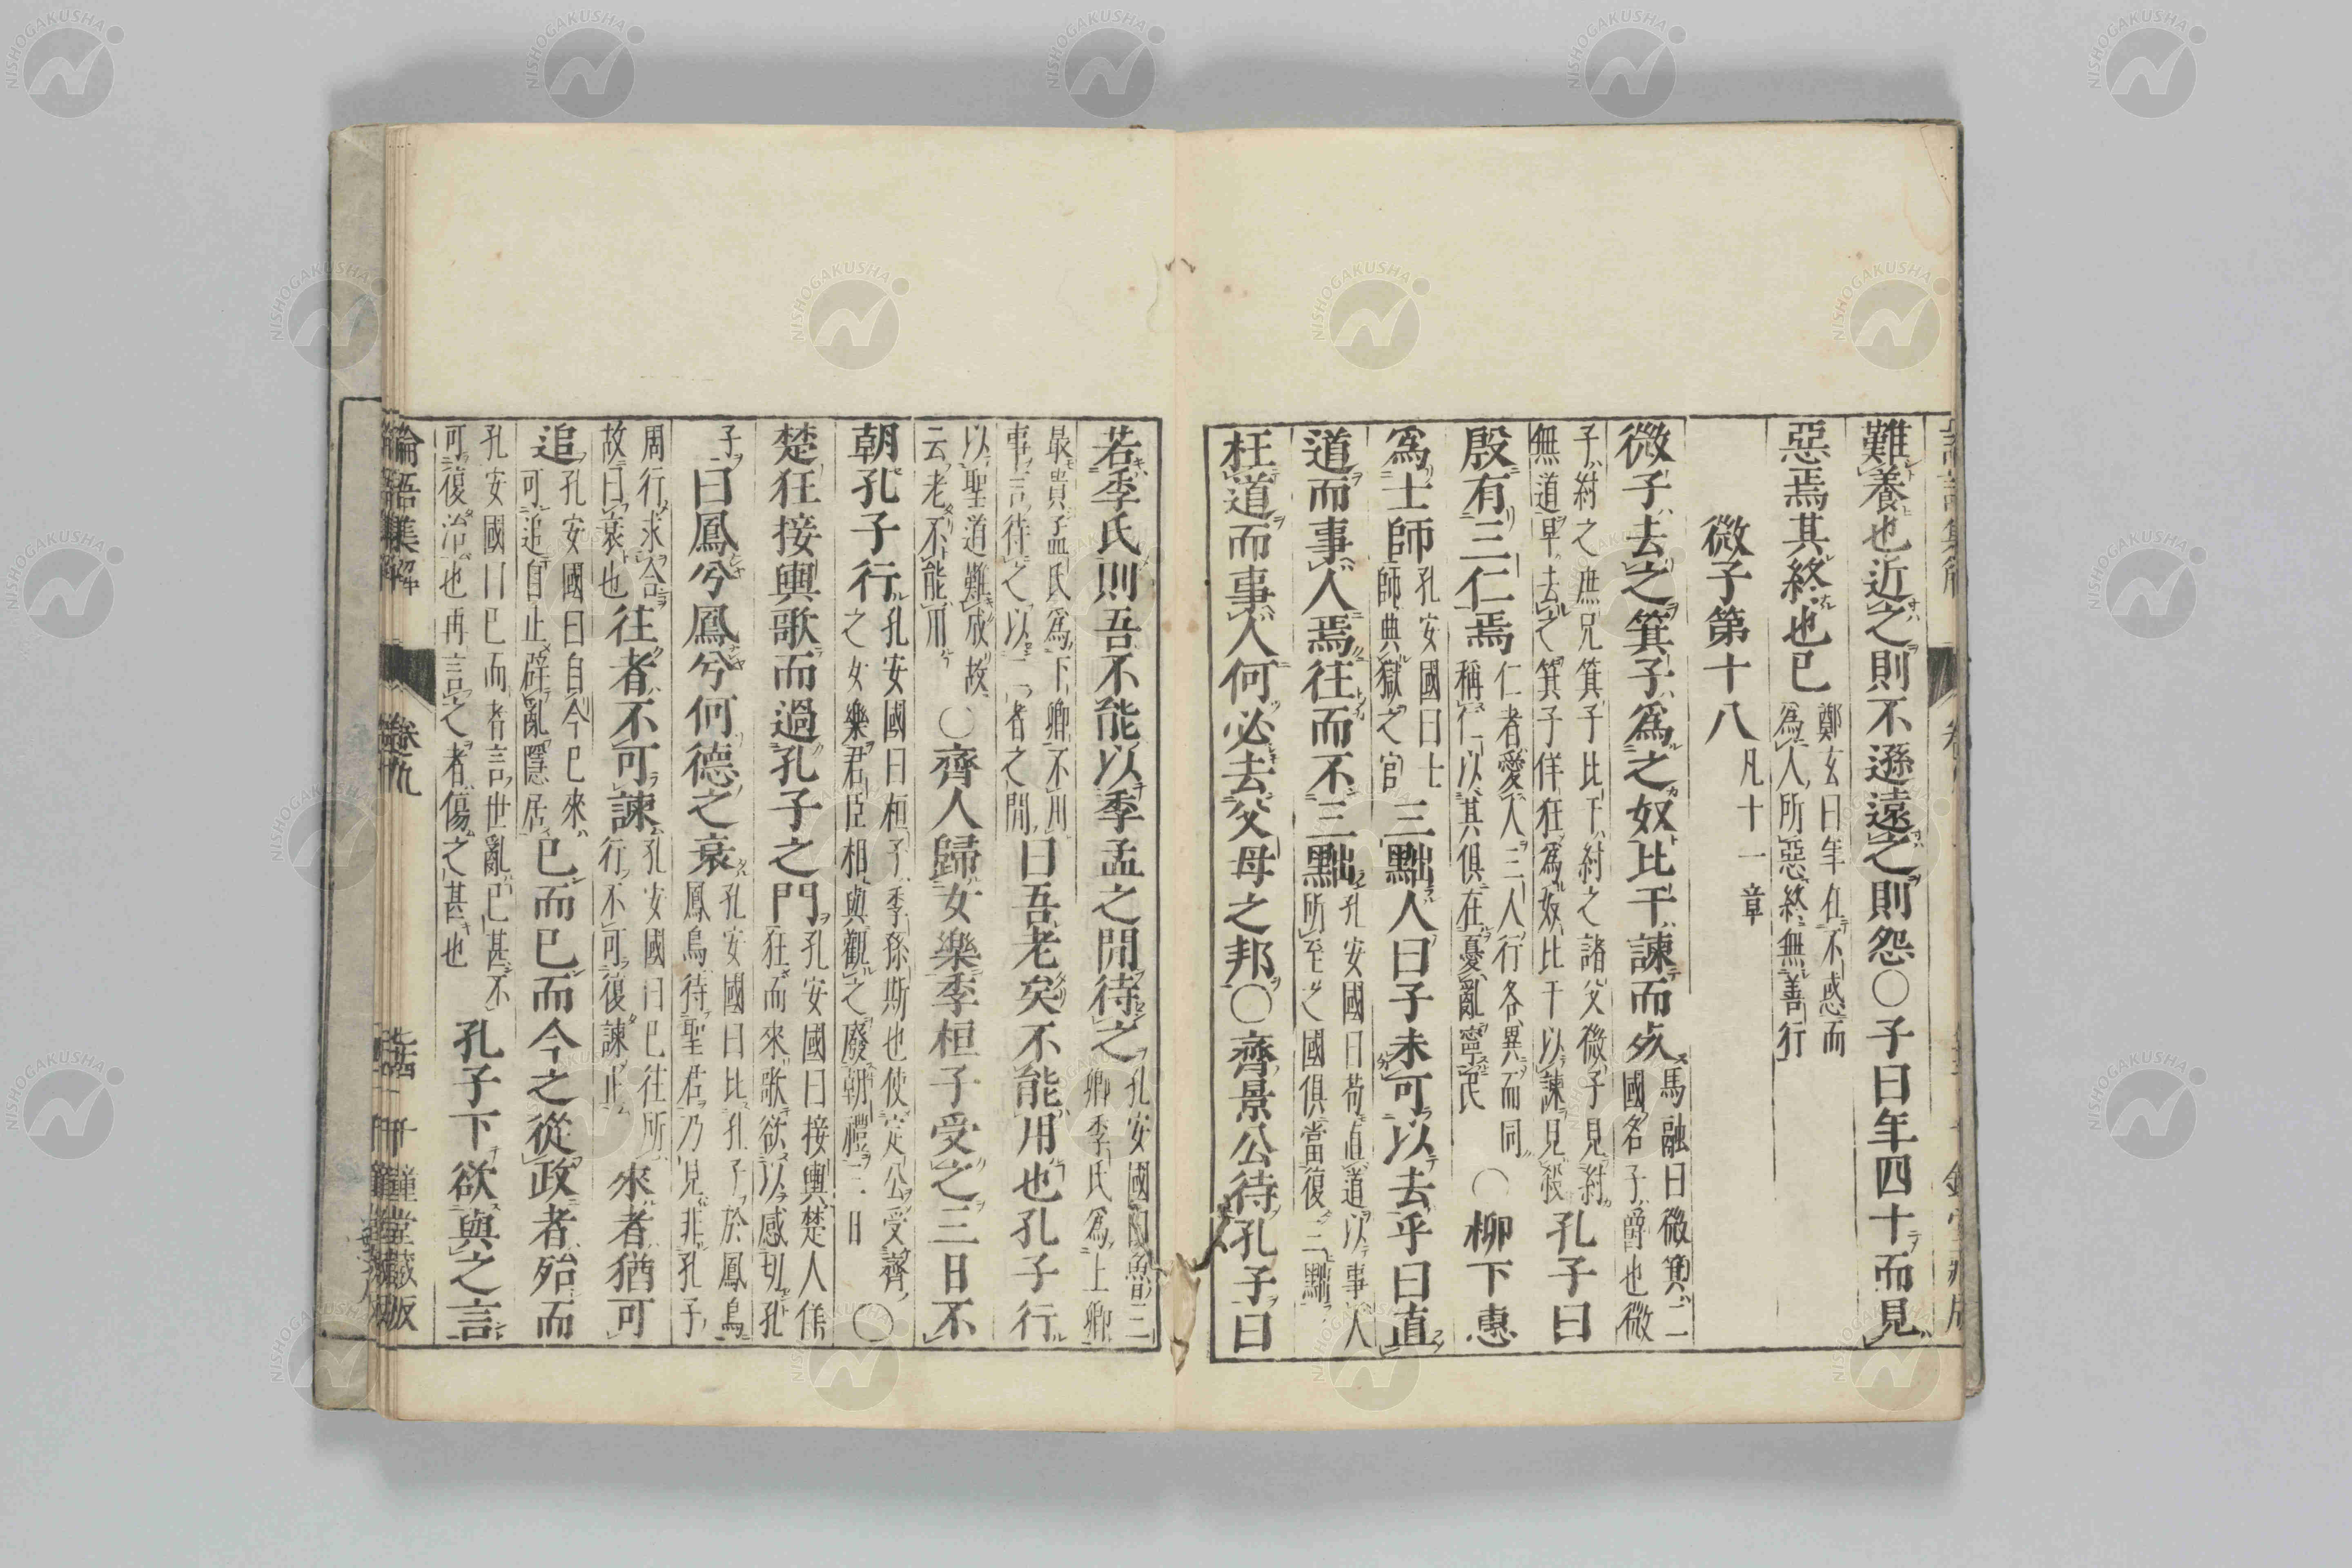 難養也近之則不遜遠之則怨○子曰年四十而見
惡焉其終也已鄭玄曰年在不惑而爲人所惡終無善行
微子第十八凡十一章
微子去之箕子爲之奴比干諫而死馬融曰微箕二國名子爵也微
子紂之庶兄箕子比干紂之諸父微子見紂無道早去之箕子佯狂爲奴比干以諫見殺孔子曰
殷有三仁焉仁者愛人三人行各異而同稱仁以其俱在憂亂寧民○柳下惠
爲士師孔安國曰士師典獄之官三黜人曰子未可以去乎曰直
道而事人焉往而不三黜孔安國曰苟直道以事人所至之國俱當復三黜
枉道而事人何必去父母之邦○齊景公待孔子曰
若季氏則吾不能以季孟之閒待之孔安國曰魯三卿季氏爲上卿
最貴孟氏爲下卿不用事言待之以二者之閒曰吾老矣不能用也孔子行
以聖道難成故云老不能用○齊人歸女樂季桓子受之三日不
朝孔子行孔安國曰桓子季孫斯也使定公受齊之女樂君臣相與觀之廢朝禮三日○
楚狂接輿歌而過孔子之門孔安國曰接輿楚人佯狂而來歌欲以感切孔
子曰鳳兮鳳兮何德之衰孔安國曰比孔子於鳳鳥鳳鳥待聖君乃見非孔子
周行求合故曰衰也往者不可諫孔安國曰已往所行不可復諫止來者猶可
追孔安國曰自今已來可追自止辟亂隱居已而已而今之從政者殆而
孔安國曰已而者言世亂已甚不可復治也再言之者傷之甚也孔子下欲與之言
論語集解 卷九